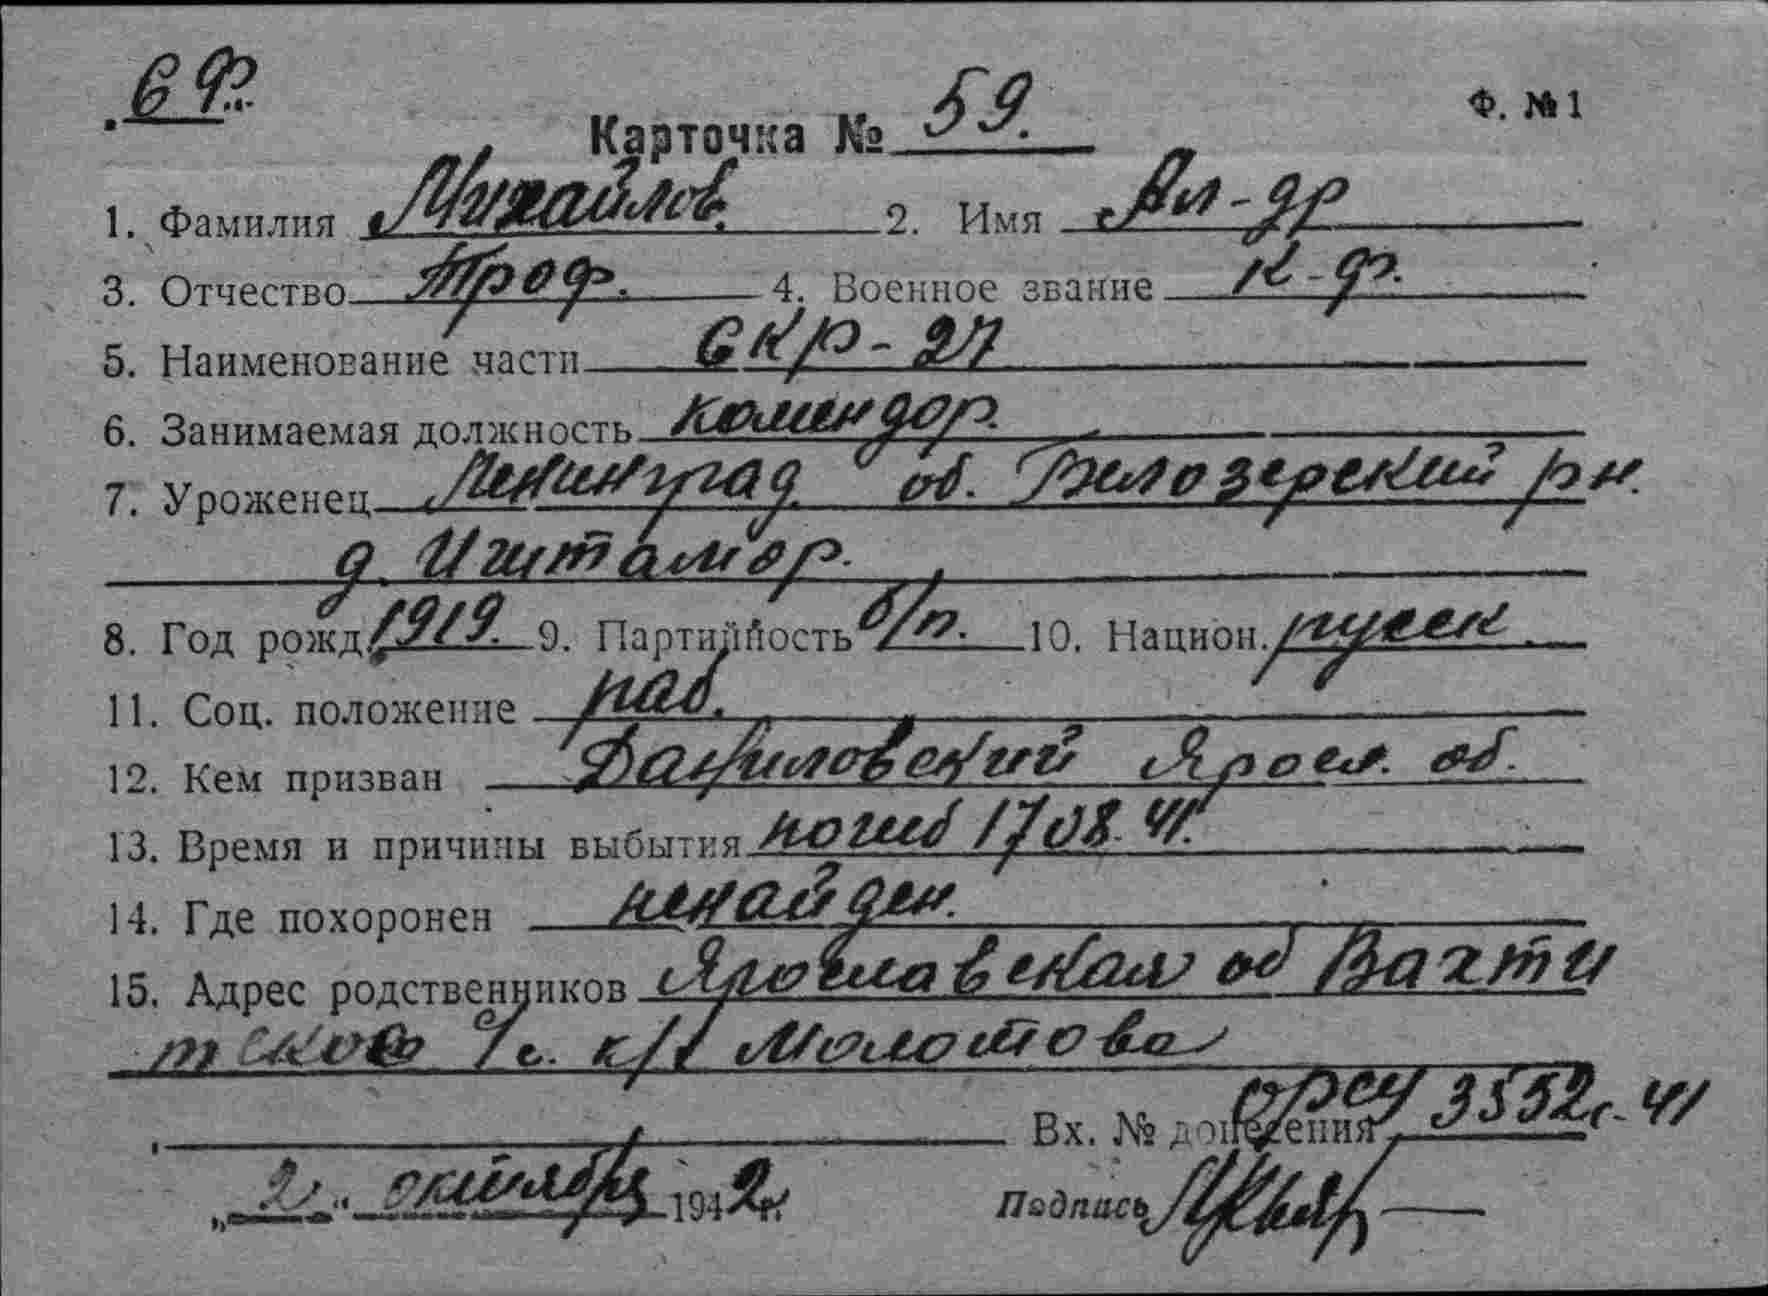 6 Ф.
Карточка № 59. Ф. № 1
1. Фамилия Михайлов. 2. Имя Ал-др
3. Отчество Троф. 4. Военное звание к-ф.
5. Наименование части СКР-27
6. Занимаемая должность комендор.
7. Уроженец Ленинград об. Белозерский рн.
д. Иштамор.
8. Год рожд. 1919. 9. Партийность б/п. 10. Национ. русск
11. Соц. положение раб.
12. Кем призван Даниловский Яросл. об.
13. Время и причины выбытия погиб 17 08. 41.
14. Где похоронен ненайден.
15. Адрес родственников Ярославская об Вахти
с/с. к/з Молотова
Вх. № донесения орсу 3552с. 41
„2" октября 1942 г. Подпись